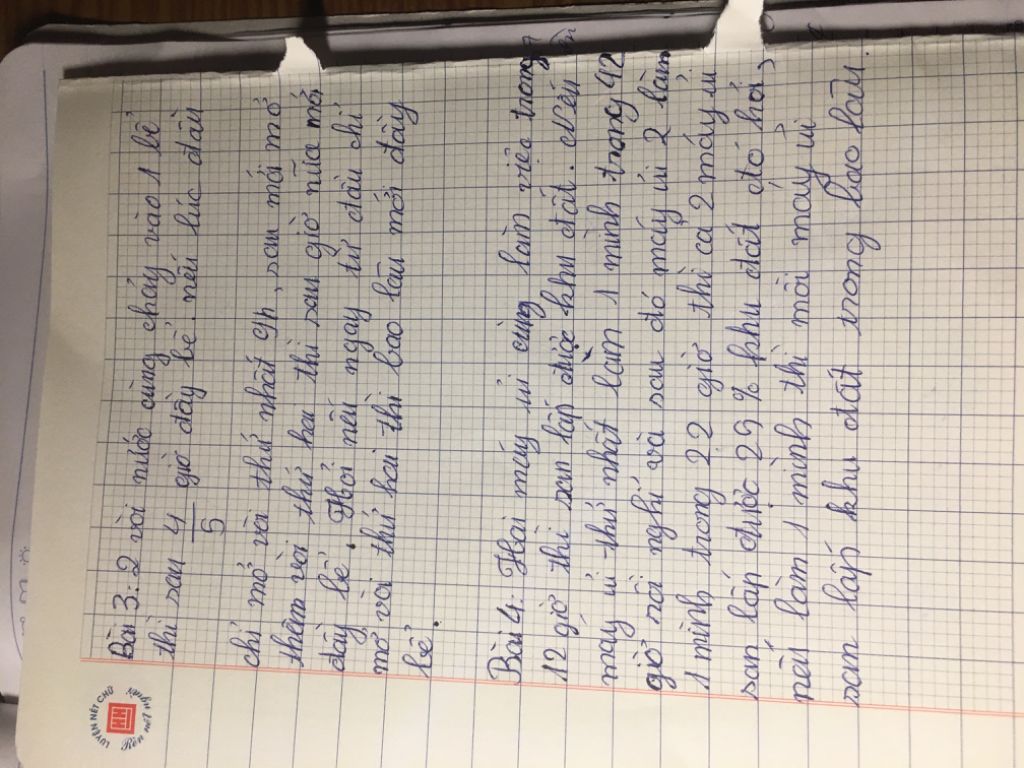 LUYỆN NÉT CHỮ
HH
Rèn nết người
Bài 3: 2 vòi nước cùng chảy vào 1 bể
thì sau 4/5 giờ đầy bể. nếu lúc đầu
chỉ mở vòi thứ nhất 9h, sau mới mở
thêm vòi thứ hai thì sau giờ nữa mới
đầy bể. Hỏi nếu ngay từ đầu chỉ
mở vòi thứ hai thì bao lâu mới đầy
bể.
Bài 4: Hai máy ủi cùng làm việc trong
12 giờ thì san lấp được khu đất. Nếu
máy ủi thứ nhất làm 1 mình trong 42
giờ rồi nghỉ và sau đó máy ủi 2 làm
1 mình trong 22 giờ thì cả 2 máy ủi
san lấp được 25% khu đất đó hỏi,
nếu làm 1 mình thì mỗi máy ủi
san lấp khu đất trong bao lâu.